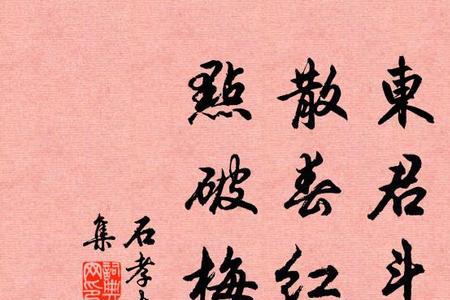 東君斗
散春紅
點破梅
石孝
集